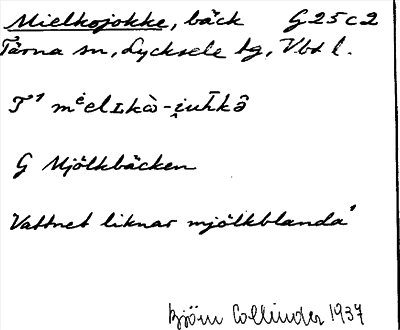 Mielkojokke, bäck G25c2
Tärna sn, Lycksele lg, Vbtn l.
G Mjölkbäcken
Vattnet liknar mjölkblanda'
Björn Collinder 1937